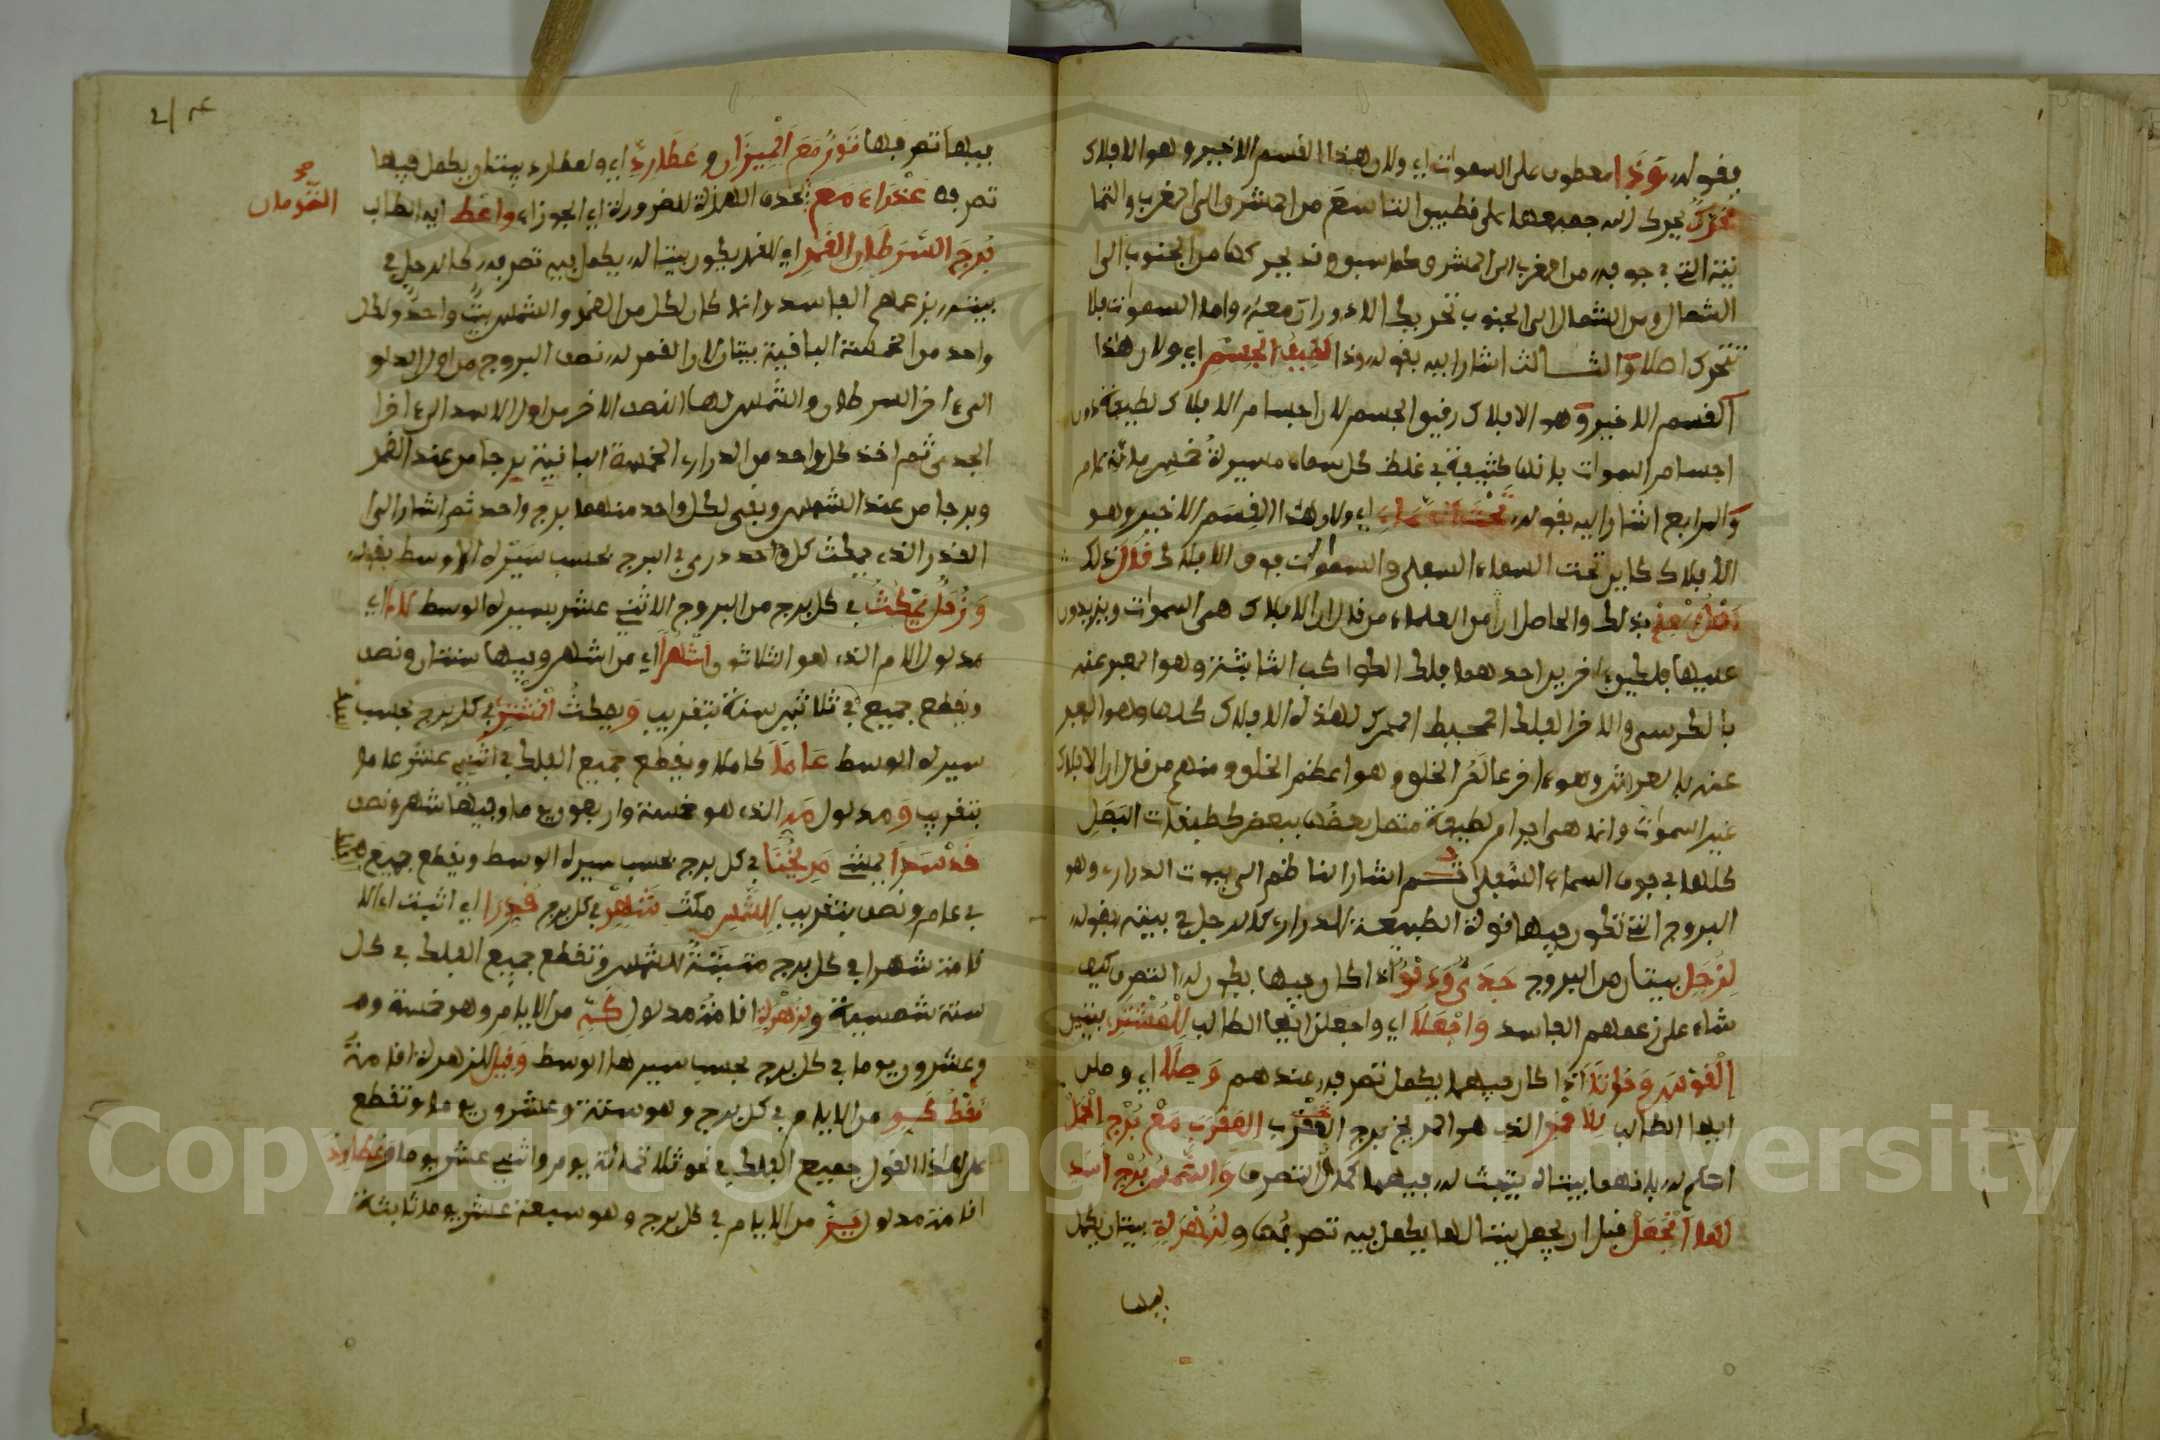 بقوله وذا معطوف على السموات اي ولان هذا القسم الاخير وهو الافلاك
تحرك يحرك الله جميعها على قطبي التاسع من المشرق الى المغرب والثما
نية التي في جوفه من المغرب الى المشرق كما سبق وقد يحركها من الجنوب الى
الشمال ومن الشمال الى الجنوب تحريك الادوران معه واما السموات فلا
تتحرك اصلا والثالث اشار اليه بقوله وذا لطيف الجسم اي ولان هذا
القسم الاخير وهو الافلاك رقيق الجسم لان اجسام الافلاك لطيفة دون
اجسام السموات فانها كثيفة في غلظ كل سماء مسيرة خمس مائة عام
والرابع اشار اليه بقوله تحت السماء اي ولان هذا القسم الاخير وهو
الافلاك كاين تحت السماء السفلى والسموات فوق الافلاك قال ذلك
بذلك والحاصل ان من العلماء من قال ان الافلاك هي السموات ويزيدون
عليها فلكين اخرين احدهما فلك الكواكب الثابتة وهو المعبر عنه
بالكرسي والاخر الفلك المحيط المحرك لهذه الافلاك كلها وهو المعبر
عنه بالعرش وهو اخر عالم الخلق وهو اعظم الخلق ومنهم من قال ان الافلاك
غير السموات وانما هي اجرام لطيفة متصل بعضها ببعض كطبقات البصل
كلها في جوف السماء السفلى ثم اشار الناظم الى بيوت الدراري وهو
البروج التي تكون فيها قوة الطبيعة الدراري كالرجل في بيته بقوله
لزحل بيتان من البروج جدي ودلو اذا كان فيها يكون له التصرف كيف
شاء على زعمهم الفاسد واجعلا اي واجعلن ايها الطالب للمشتري بيتين
القوس وحوتا اذا كان فيهما يكمل تصرفه عندهم وصلا اي وصلن
ايها الطالب للاحمر الذي هو المريخ برج العقرب العقرب مع برج الحمل
احكم له بانهما بيتاه يثبت له فيهما كمال التصرف والشمس برج اسد
لها اجعل قبل ان يجعل بيتا لها يكمل فيه تصرفها ولزهرة بيتان يكمل
فيها
فيها تصرفها ثور مع الميزان وعطارد اي ولعطارد بيتان يكمل فيهما
تصرفه عذراء مع اي الجوزاء واعط ايها الطالب
برج السرطان القمر اي للقمر يكون بيتا له يكمل فيه تصرفه كالرجل في
بيته بزعمهم الفاسد وانما كان لكل من القمر والشمس بيت واحد ولكل
واحد من الخمسة الباقية بيتان لان القمر له نصف البروج من اول الدلو
الى اخر السرطان والشمس لها النصف الاخر من اول الاسد الى اخر
الجدي ثم اخذ كل واحد من الدراري الخمسة الباقية برجا من عند القمر
وبرجا من عند الشمس وبقي لكل واحد منهما برج واحد ثم اشار الى
القدر الذي يمكث كل واحد دري في البرج بحسب سيره الاوسط بقوله
وزحل يمكث في كل برج من البروج الاثني عشر بسيره الوسط اي
مدلول اللام الذي هو الثلاثون اشهرا اي من اشهر وفيها سنتان ونصف
ويقطع جميع في ثلاثين سنة بتقريب ويمكث المشتري في كل برج بحسب
سيره الوسط عاما كاملا ويقطع جميع الفلك في اثني عشر عاما
بتقريب ومدلول مه الذي هو خمسة واربعون يوما وفيها شهر ونصف
قد سرا يمشي مريخنا في كل برج بحسب سيره الوسط ويقطع جميع
في عام ونصف بتقريب للشمس مكث شهر في كل برج قررا اي اثبت
قامة شهرا في كل برج مثبتة للشمس وتقطع جميع الفلك في كل
سنة شمسية ولزهرة اقامة مدلول كه من الايام وهو خمسة و
وعشرون يوما في كل برج بحسب سيرها الوسط وقيل للزهرة اقامة
فقط كو من الايام في كل برج وهو ستة وعشرون يوما وتقطع
على هذا القول جميع الفلك في نحو ثلاثمائة يوم واثني عشر يوما وعطارد
اقامة مدلول يز من الايام في كل برج وهو سبعة عشر يوما ثابتة
Copyright © King Saud University